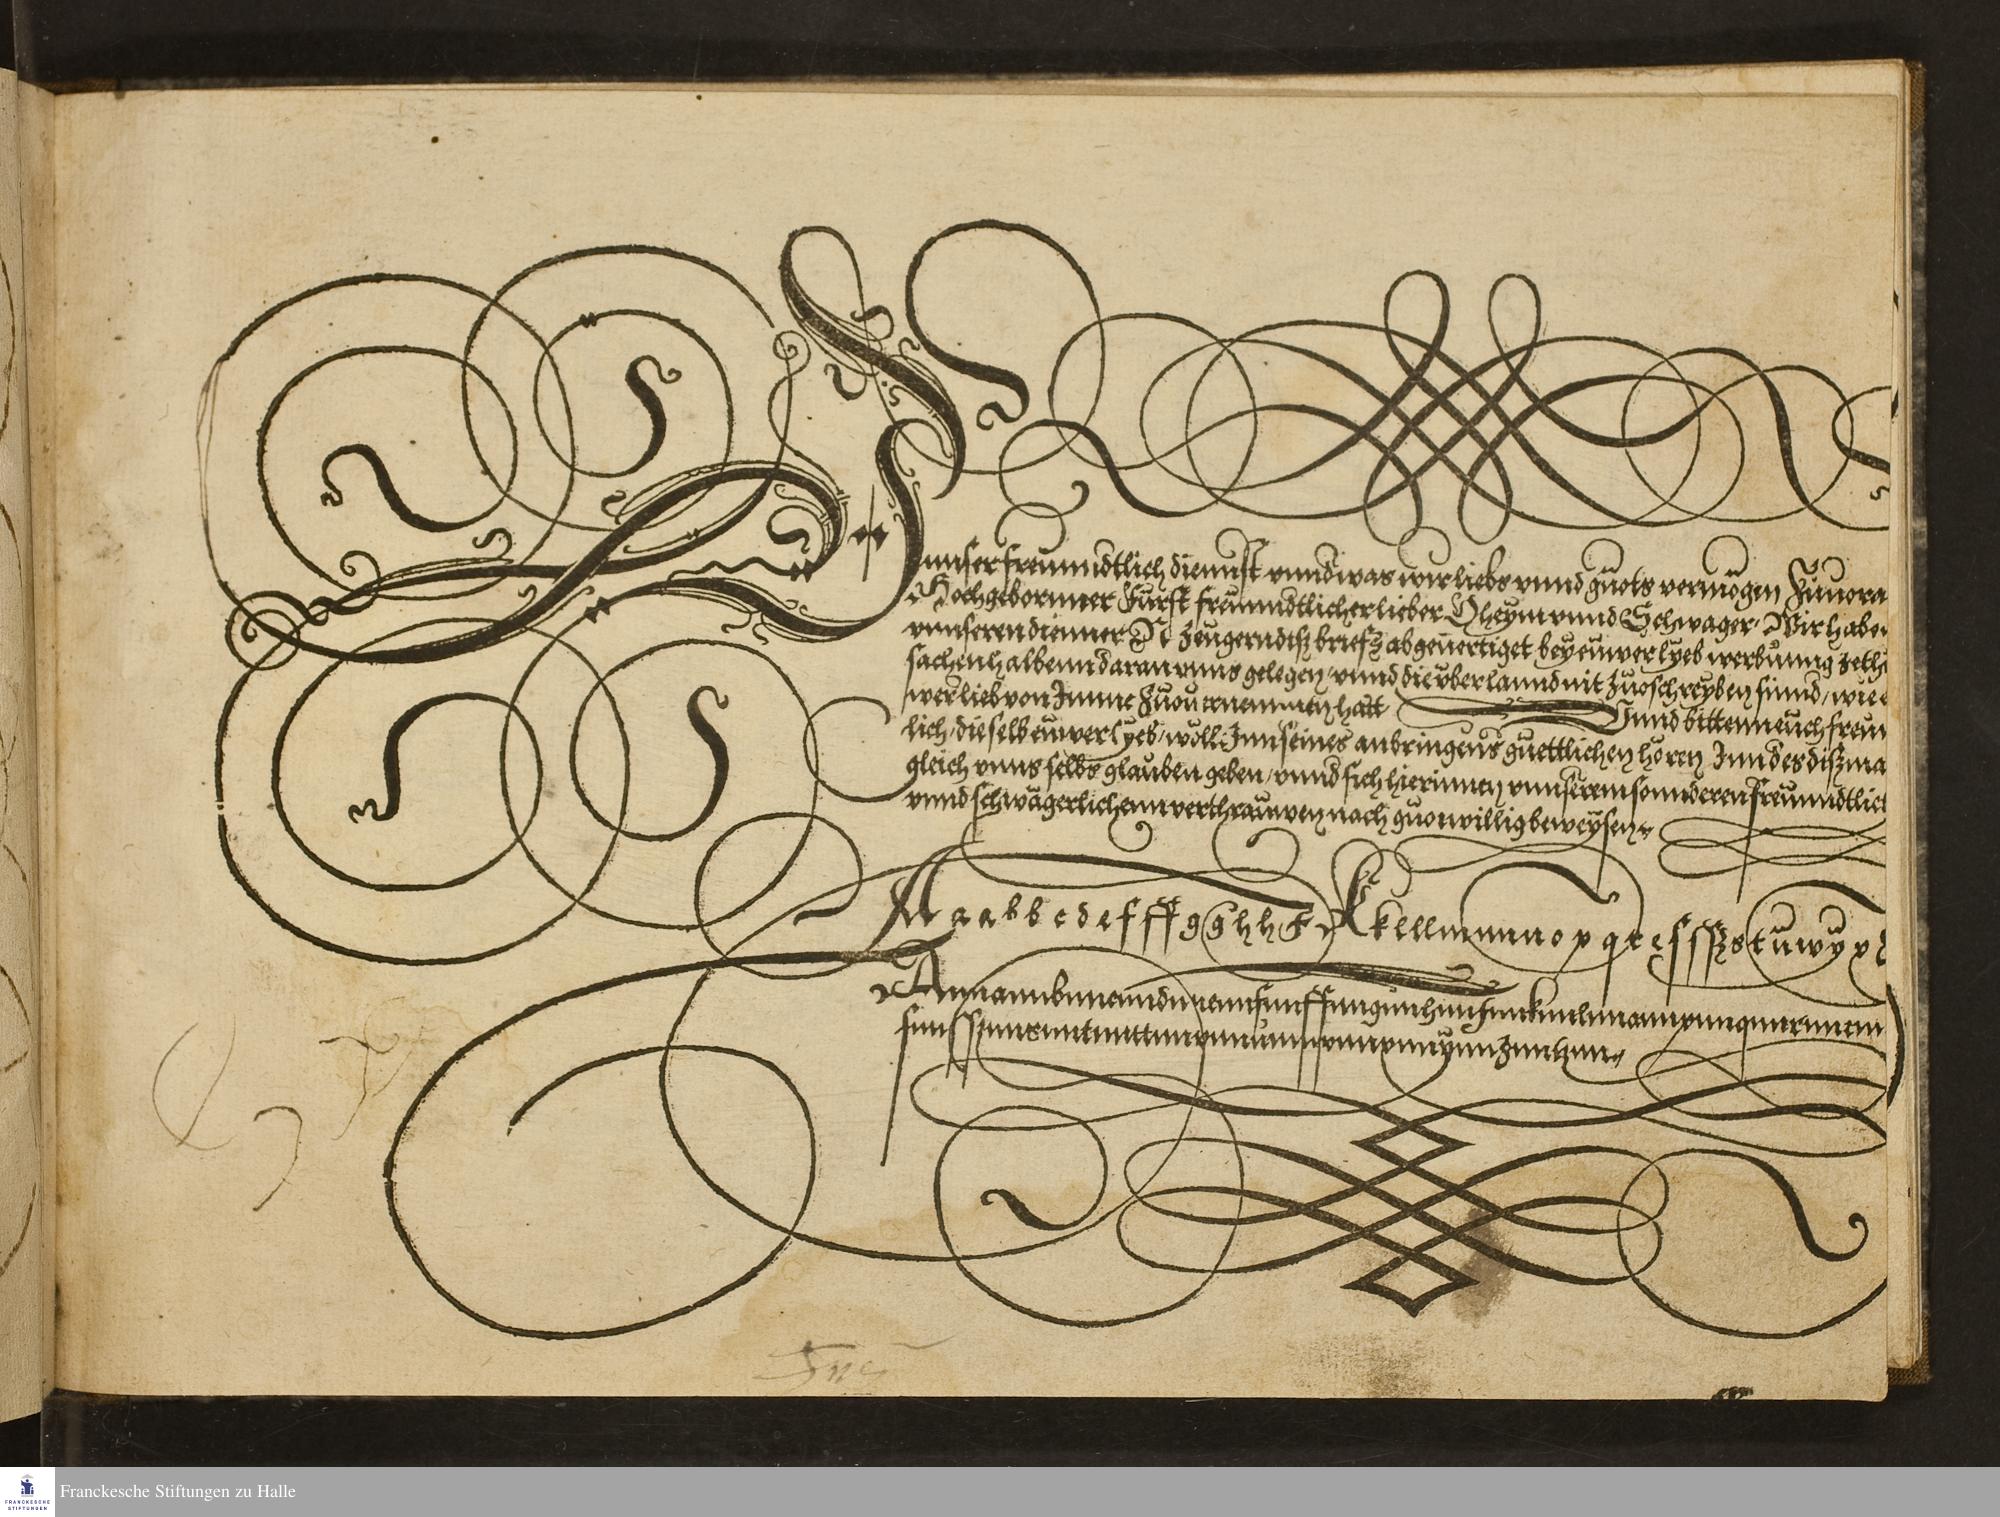 Unnser freunndtlich diennst vnnd was wir liebs vnnd guots vermögen Zuuora
Hochgebornner Fürst freunndtlicher lieber Oheym vnnd Schwager. Wir habe
vnnseren dienner N zeugern diß briefs abgeuertiget bey euwer lyeb werbunng zeth
sachenhalbenn daran vnns gelegen, vnnd die vber lannd nit zuoschreyben sinnd, wie e
wer lieb von Imme Zuuernemmen hatt Unnd bittenn euch freun
lich, dieselb euwer lyeb, wöll Inn seines anbringens guettlichen hören Inn des dißma
gleich vnns selbs glauben geben, vnnd sich hierinnen vnnserem sonnderen freunndtlic
vnnd schwägerlichenn verthrauwen nach guotwillig beweysen.
A a a b b c d e f ff g g h h k k l ll m n n o p q r e s ss ß s t u w y x
Annannbnncnndnnennfnnffnngnnhnninnknnlnnmnnonnpnnqnnrnnenn
snnssnnßnnsnntnnttnnvnnunnwnnxnnynnznntznn.
Franckesche Stiftungen zu Halle
FRANCKESCHE
STIFTUNGEN